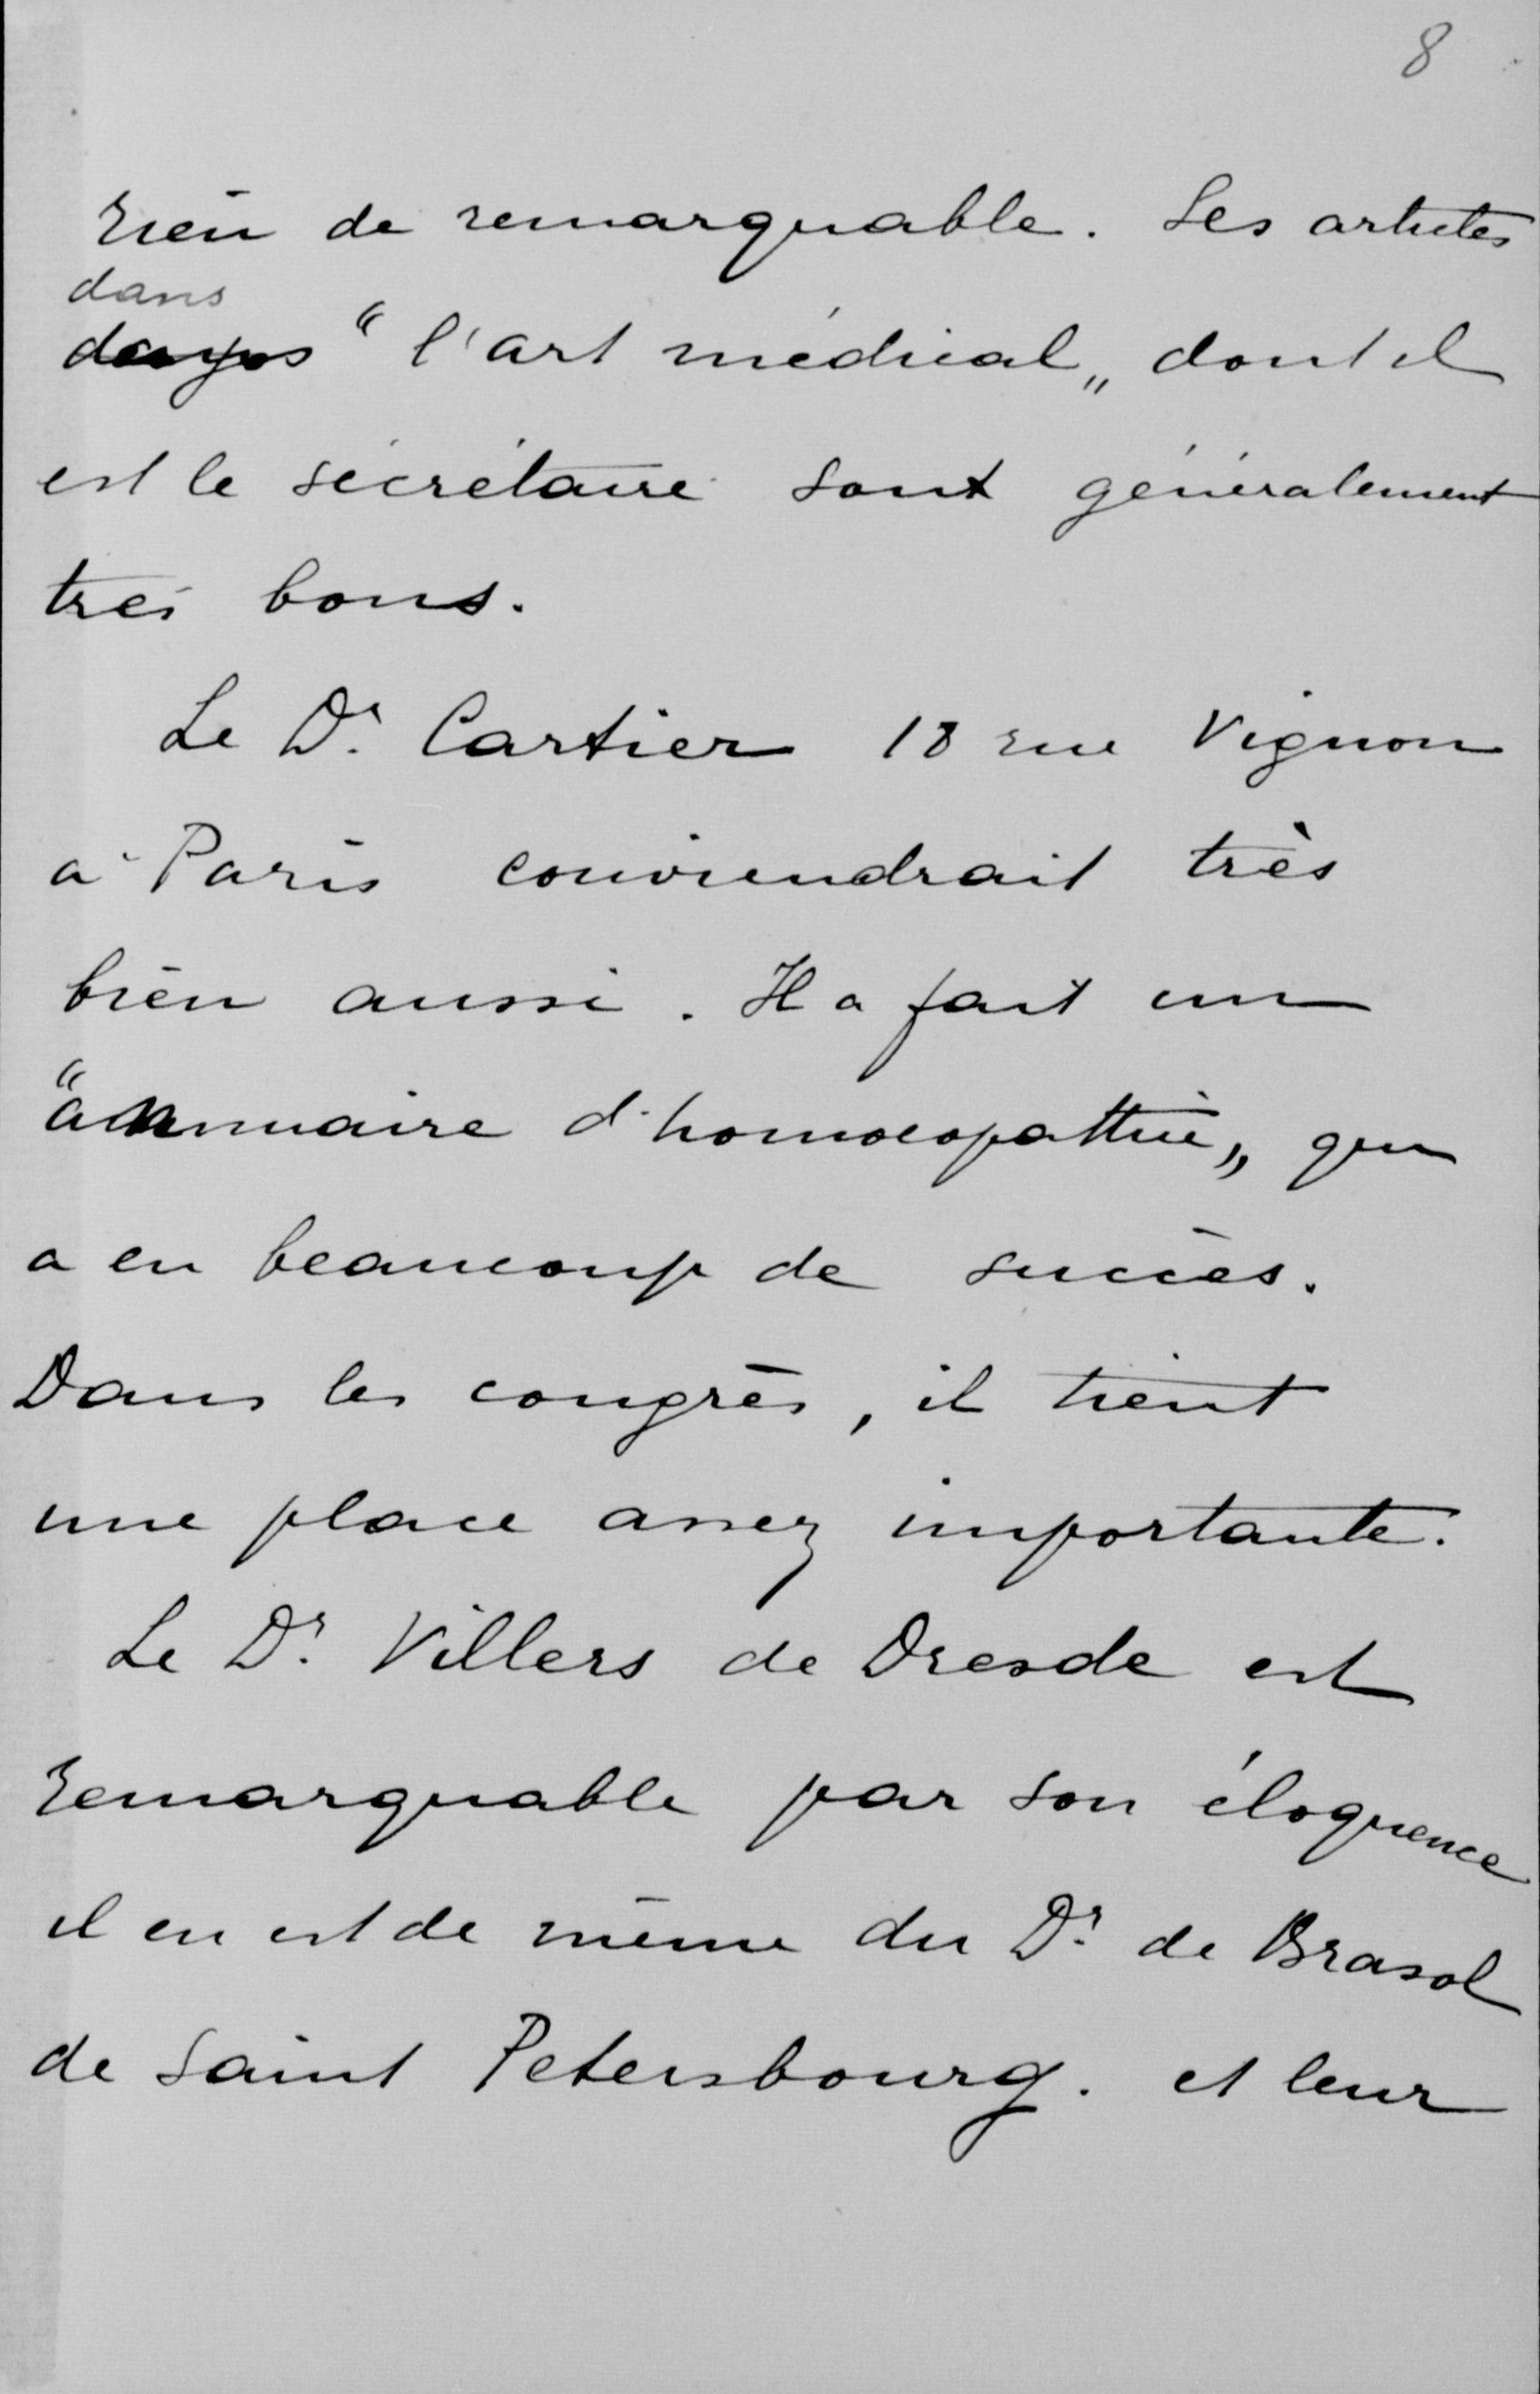 8
rien de remarquable. Ses articles
dans
"l'art médical„ dont il
est le sécrétaire sont généralement
très bons.
Le Dr. Cartier 18 rue Vignon
à Paris conviendrait très
bien aussi. Il a fait un
"annuaire d'homoeopathie„ qui
a eu beaucoup de succès.
Dans les congrès, il tient
une place assez importante.
Le Dr. Villers de Dresde est
remarquable par son éloquence
il en est de même du Dr. de Brasol
de Saint Petersbourg. et leur